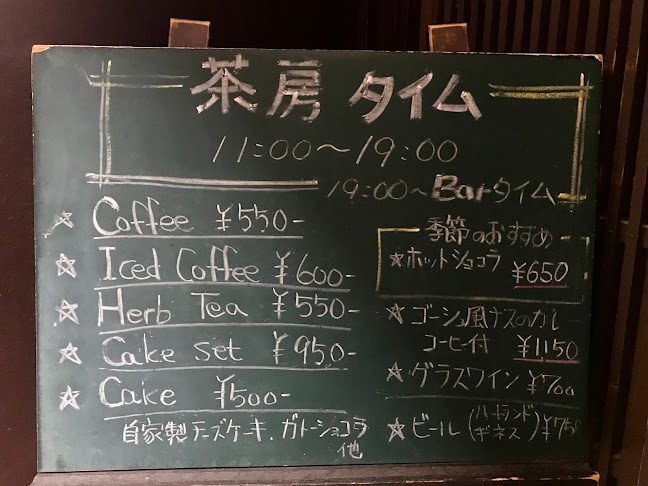 茶房タイム
11:00〜19:00
19:00〜Barタイム
☆ Coffee ¥550-
☆ Iced Coffee ¥600-
☆ Herb Tea ¥550-
☆ Cake set ¥950-
☆ Cake ¥500-
自家製チーズケーキ.ガトーショコラ
他
季節のおすすめ
☆ホットショコラ ¥650
☆ゴーシュ風ナスのカレ
コーヒー付 ¥1,150
☆グラスワイン ¥700
☆ビール(ハートランド
ギネス)¥750